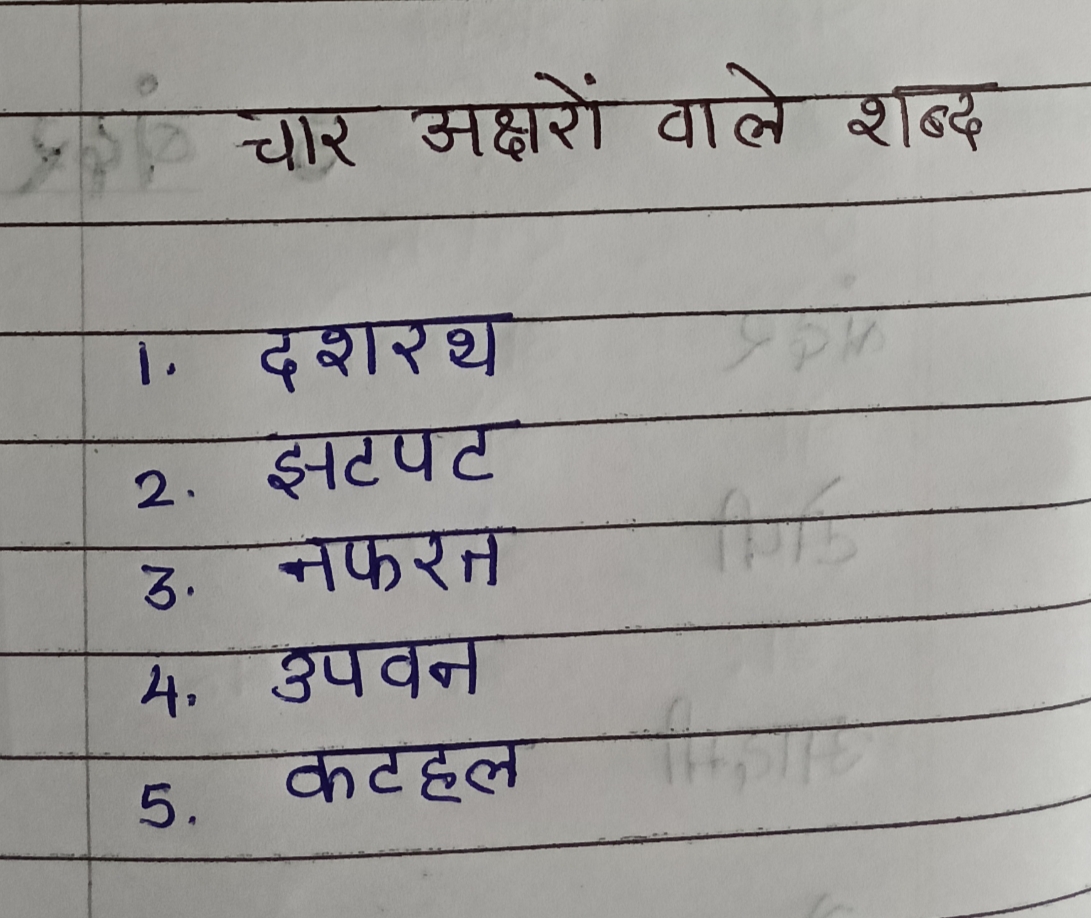 चार अक्षरों वाले शब्द
1. दशरथ
2. झटपट
3. नफरत
4. उपवन
5. कटहल